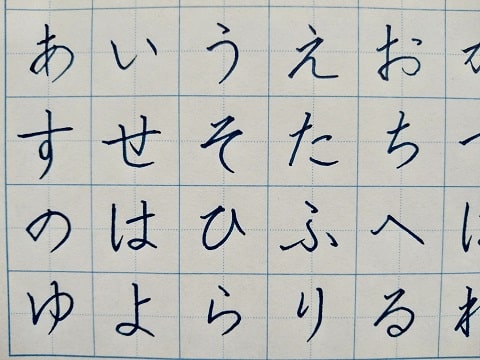 あいうえお
すせそたち
のはひふへ
ゆよらりる